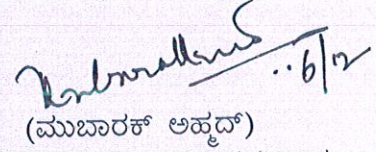 6/2
(ಮುಬಾರಕ್ ಅಹ್ಮದ್)